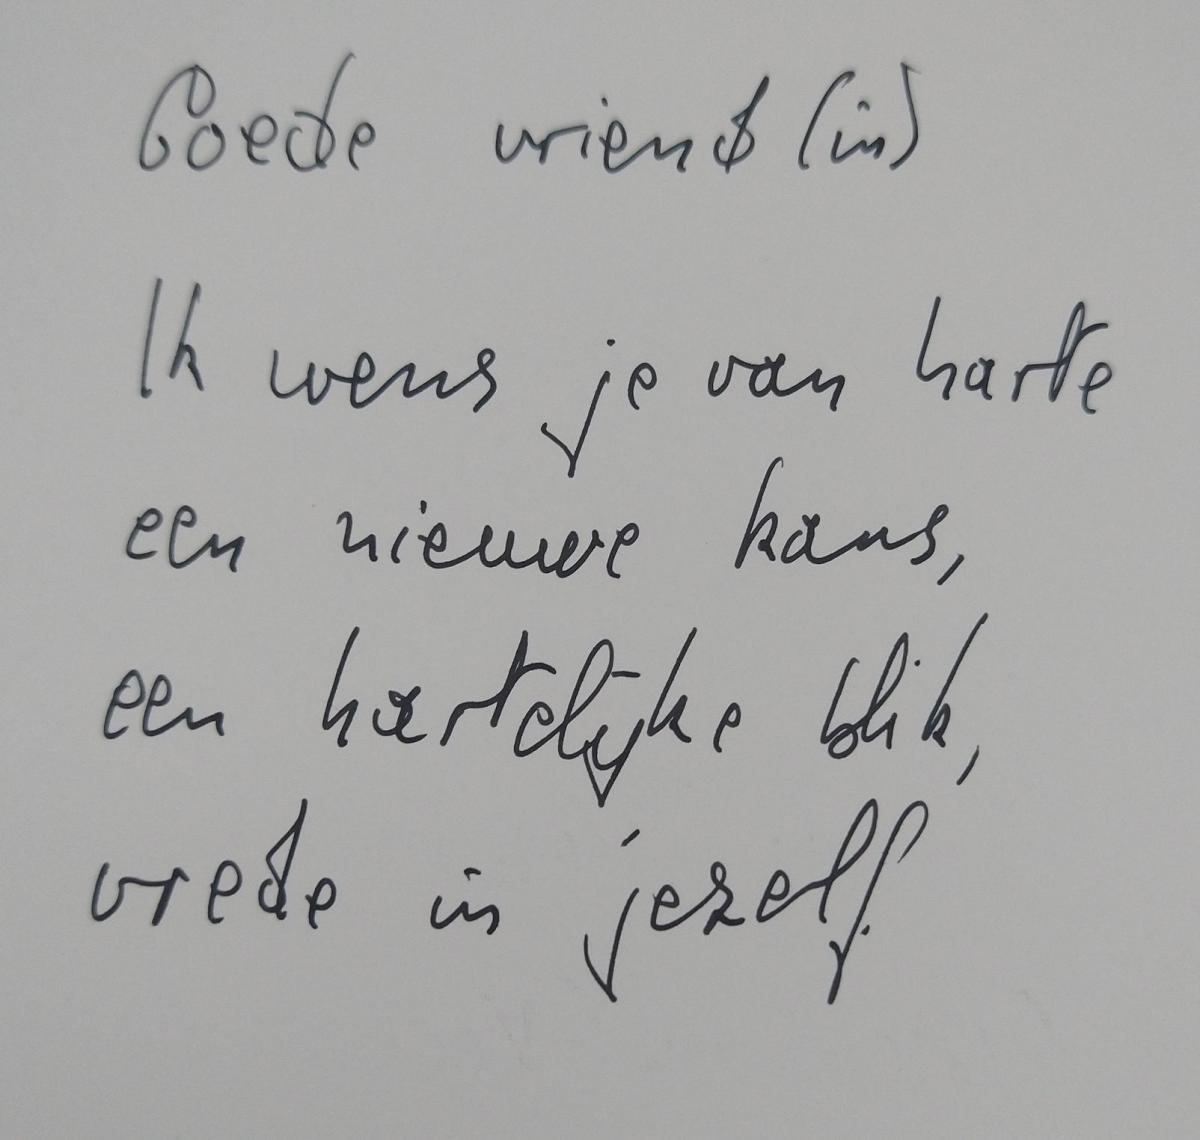 Goede vriend (in)
Ik wens je van harte
een nieuwe kans,
een hartelijke blik,
vrede in jezelf.